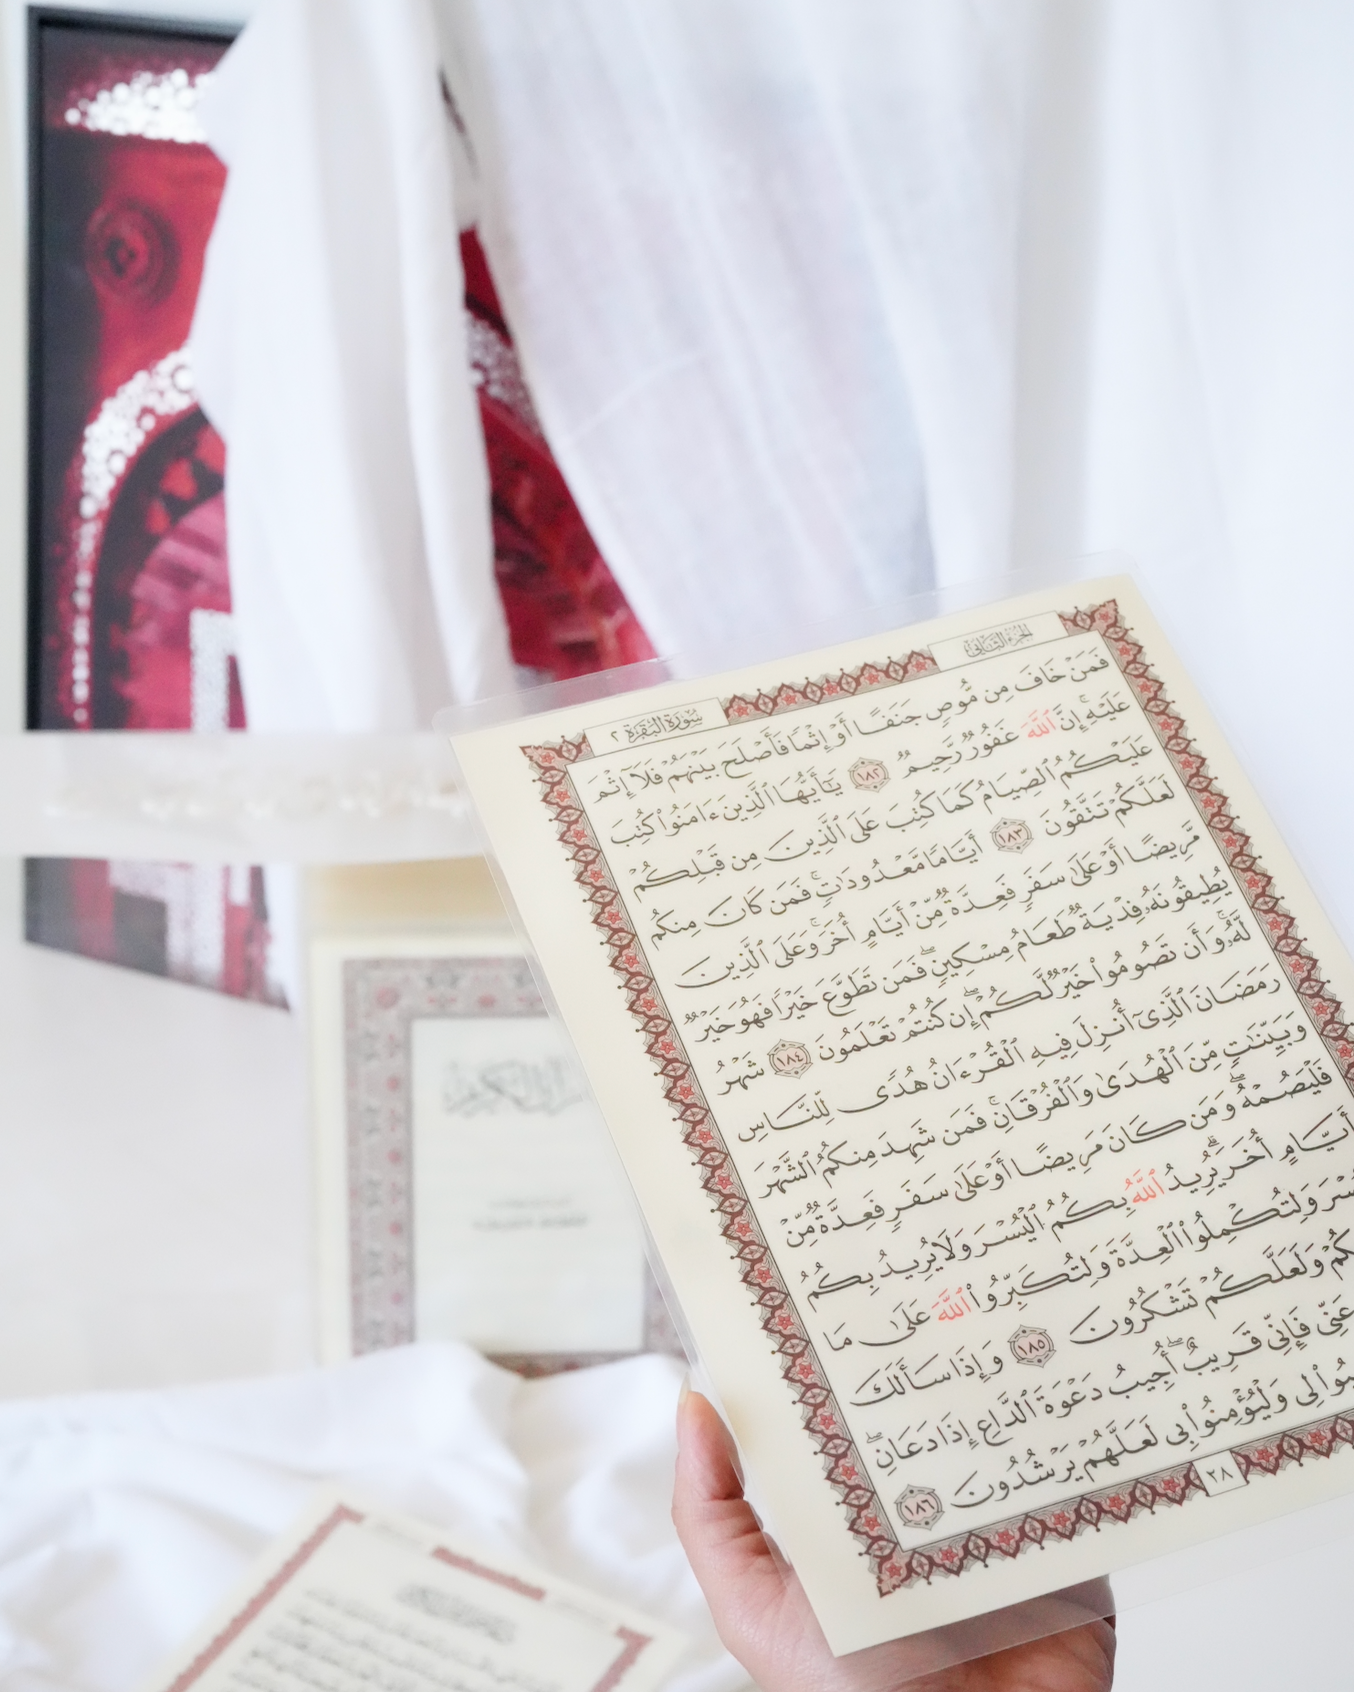 سُورَةُ البَقَرَةِ ٢
الجُزْءُ الثَّانِي
فَمَنْ خَافَ مِن مُّوصٍ جَنَفًا أَوْ إِثْمًا فَأَصْلَحَ بَيْنَهُمْ فَلَآ إِثْمَ
عَلَيْهِ ۚ إِنَّ ٱللَّهَ غَفُورٌ رَّحِيمٌ ١٨٢ يَـٰٓأَيُّهَا ٱلَّذِينَ ءَامَنُوا۟ كُتِبَ
عَلَيْكُمُ ٱلصِّيَامُ كَمَا كُتِبَ عَلَى ٱلَّذِينَ مِن قَبْلِكُمْ
لَعَلَّكُمْ تَتَّقُونَ ١٨٣ أَيَّامًا مَّعْدُودَٰتٍ ۚ فَمَن كَانَ مِنكُم
مَّرِيضًا أَوْ عَلَىٰ سَفَرٍ فَعِدَّةٌ مِّنْ أَيَّامٍ أُخَرَ ۚ وَعَلَى ٱلَّذِينَ
يُطِيقُونَهُۥ فِدْيَةٌ طَعَامُ مِسْكِينٍ ۖ فَمَن تَطَوَّعَ خَيْرًا فَهُوَ خَيْرٌ
لَّهُۥ ۚ وَأَن تَصُومُوا۟ خَيْرٌ لَّكُمْ ۖ إِن كُنتُمْ تَعْلَمُونَ ١٨٤ شَهْرُ
رَمَضَانَ ٱلَّذِىٓ أُنزِلَ فِيهِ ٱلْقُرْءَانُ هُدًى لِّلنَّاسِ
وَبَيِّنَـٰتٍ مِّنَ ٱلْهُدَىٰ وَٱلْفُرْقَانِ ۚ فَمَن شَهِدَ مِنكُمُ ٱلشَّهْرَ
فَلْيَصُمْهُ ۖ وَمَن كَانَ مَرِيضًا أَوْ عَلَىٰ سَفَرٍ فَعِدَّةٌ مِّنْ
أَيَّامٍ أُخَرَ ۗ يُرِيدُ ٱللَّهُ بِكُمُ ٱلْيُسْرَ وَلَا يُرِيدُ بِكُمُ
وَلِتُكْمِلُوا۟ ٱلْعِدَّةَ وَلِتُكَبِّرُوا۟ ٱللَّهَ عَلَىٰ مَا
وَلَعَلَّكُمْ تَشْكُرُونَ ١٨٥ وَإِذَا سَأَلَكَ
عَنِّى فَإِنِّى قَرِيبٌ ۖ أُجِيبُ دَعْوَةَ ٱلدَّاعِ إِذَا دَعَانِ ۖ
لِى وَلْيُؤْمِنُوا۟ بِى لَعَلَّهُمْ يَرْشُدُونَ ١٨٦
٢٨